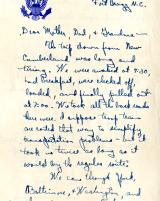 Fort Bragg N.C.
Dear Mother, Dad, & Grandma —
The trip down from New
Cumberland was long and
tiring. We were awakened at 4:30,
had breakfast, were checked off,
loaded, and finally pulled out
at 7:00. We took all the back roads
here were. I suppose troop trains
are routed that way to simplify
transportation problems — but
took us twice as long as it
would by the regular route.
We came through York,
Baltimore, & Washington, and